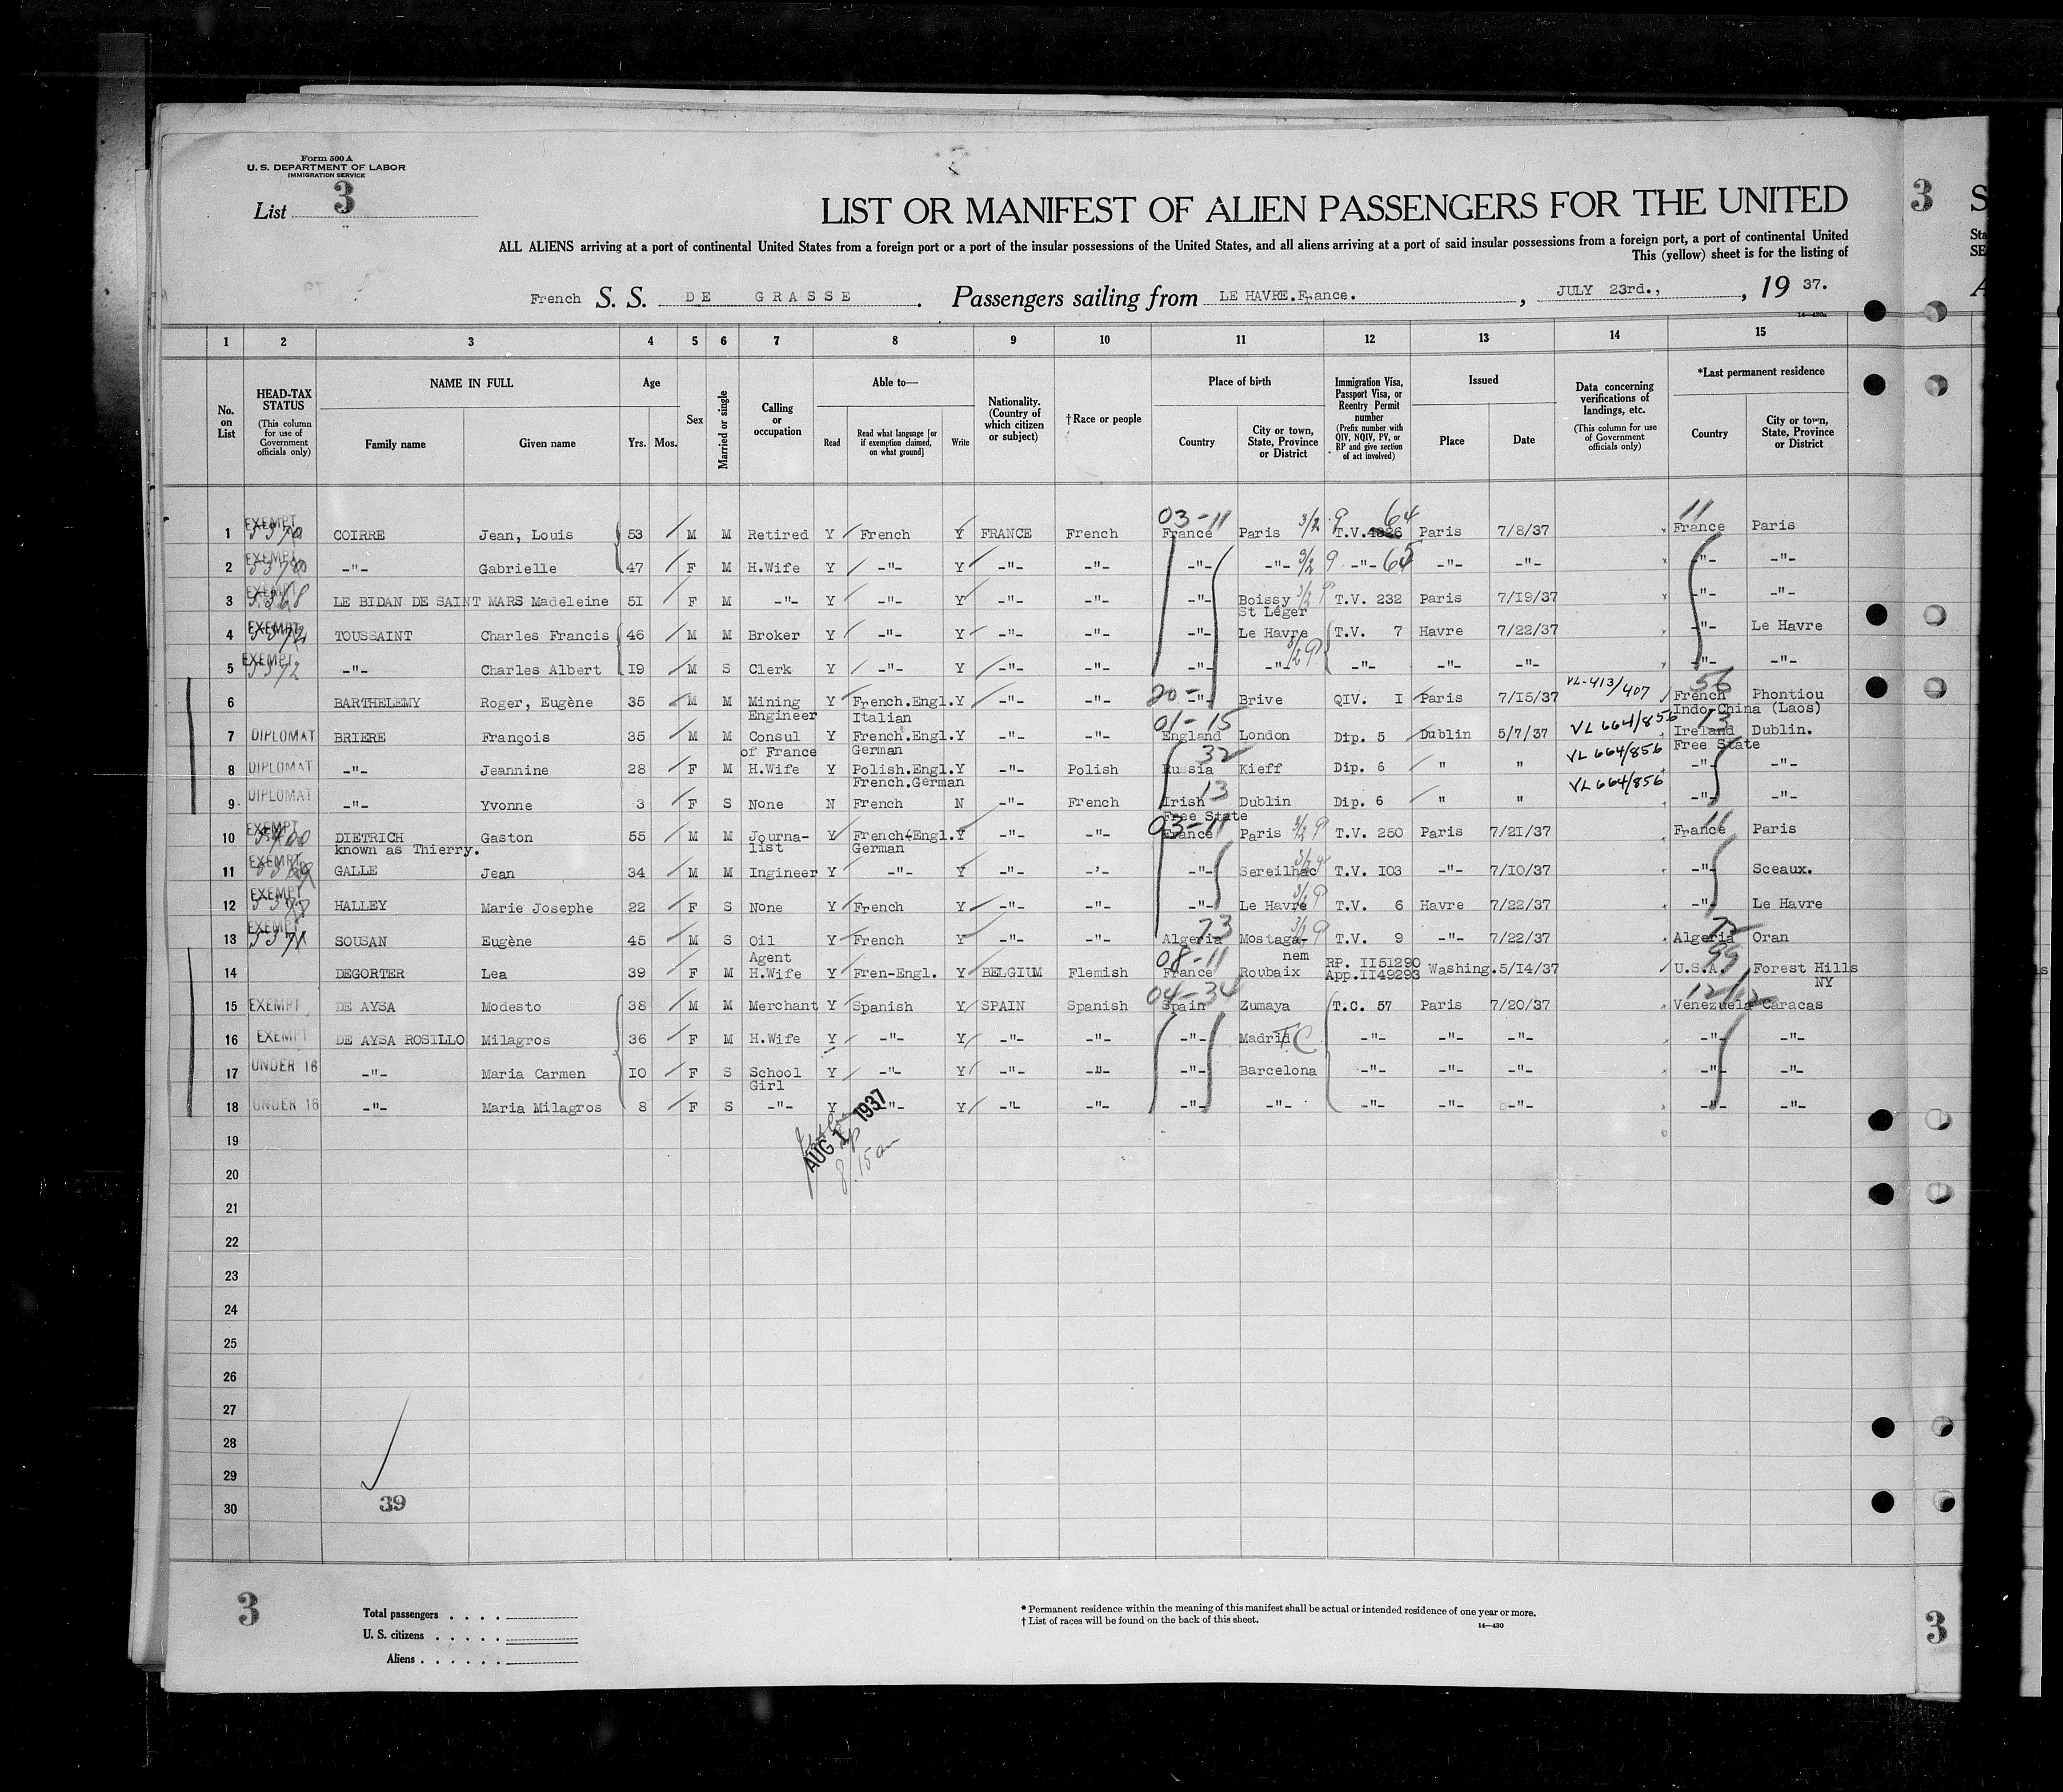 Form 500 A
U. S. DEPARTMENT OF LABOR
IMMIGRATION SERVICE
List 3
LIST OR MANIFEST OF ALIEN PASSENGERS FOR THE UNITED
3 S
ALL ALIENS arriving at a port of continental United States from a foreign port or a port of the insular possessions of the United States, and all aliens arriving at a port of said insular possessions from a foreign port, a port of continental United
This (yellow) sheet is for the listing of
French S. S. DE GRASSE . Passengers sailing from LE HAVRE.France. , JULY 23rd., , 19 37.
1 2 3 4 5 6 7 8 9 10 11 12 13 14 15
No. on List
HEAD-TAX STATUS (This column for use of Government officials only)
NAME IN FULL
Family name Given name
Age
Yrs. Mos.
Sex
Married or single
Calling or occupation
Able to—
Read Read what language [or if exemption claimed, on what ground] Write
Nationality. (Country of which citizen or subject)
† Race or people
Place of birth
Country City or town, State, Province or District
Immigration Visa, Passport Visa, or Reentry Permit number (Prefix number with QIV, NQIV, PV, or RP and give section of act involved)
Issued
Place Date
Data concerning verifications of landings, etc. (This column for use of Government officials only)
*Last permanent residence
Country City or town, State, Province or District
03-11 64 11
1 EXEMPT COIRRE Jean, Louis 53 M M Retired Y French Y FRANCE French France Paris 3/2 9 T.V. Paris 7/8/37 France Paris
2 EXEMPT -"- Gabrielle 47 F M H.Wife Y -"- Y -"- -"- -"- -"- 3/2 9 -"- 65 -"- -"- -"- -"-
3 EXEMPT 5368 LE BIDAN DE SAINT MARS Madeleine 51 F M -"- Y -"- Y -"- -"- -"- Boissy St Léger T.V. 232 Paris 7/19/37 -"- -"-
4 EXEMPT 5372 TOUSSAINT Charles Francis 46 M M Broker Y -"- Y -"- -"- -"- Le Havre T.V. 7 Havre 7/22/37 -"- Le Havre
5 EXEMPT 5372 -"- Charles Albert 19 M S Clerk Y -"- Y -"- -"- -"- -"- -"- -"- -"- -"- -"-
6 BARTHELEMY Roger, Eugène 35 M M Mining Engineer Y French.Engl. Italian Y -"- -"- 20- -"- Brive QIV. I Paris 7/15/37 VL-413/407 56 French Indo-China (Laos) Phontiou
7 DIPLOMAT BRIERE François 35 M M Consul of France Y French.Engl. German Y -"- -"- 01-15 England London Dip. 5 Dublin 5/7/37 VL 664/856 13 Ireland Free State Dublin.
8 DIPLOMAT -"- Jeannine 28 F M H.Wife Y Polish.Engl. French.German Y -"- Polish 32 Russia Kieff Dip. 6 " " VL 664/856 -"- -"-
9 DIPLOMAT -"- Yvonne 3 F S None N French N -"- French 13 Irish Free State Dublin Dip. 6 " " VL 664/856 -"- -"-
10 EXEMPT DIETRICH known as Thierry. Gaston 55 M M Journa-list Y French-Engl. German Y -"- -"- 03-11 France Paris 3/2 9 T.V. 250 Paris 7/21/37 11 France Paris
11 EXEMPT GALLE Jean 34 M M Ingineer Y -"- Y -"- -'- -"- Sereilhac T.V. 103 -"- 7/10/37 -"- Sceaux.
12 EXEMPT HALLEY Marie Josephe 22 F S None Y French Y -"- -"- -"- Le Havre T.V. 6 Havre 7/22/37 -"- Le Havre
13 EXEMPT 5371 SOUSAN Eugène 45 M S Oil Agent Y French Y -"- -"- 73 Algeria Mostaga-nem T.V. 9 -"- 7/22/37 72 Algeria Oran
14 DEGORTER Lea 39 F M H.Wife Y Fren-Engl. Y BELGIUM Flemish 08-11 France Roubaix RP. II51290 App.II49293 Washing. 5/14/37 99 U.S.A. Forest Hills NY
15 EXEMPT DE AYSA Modesto 38 M M Merchant Y Spanish Y SPAIN Spanish 04-34 Spain Zumaya T.C. 57 Paris 7/20/37 Venezuela Caracas
16 EXEMPT DE AYSA ROSILLO Milagros 36 F M H.Wife Y -"- Y -"- -"- -"- Madrid TC -"- -"- -"- -"- -"-
17 UNDER 16 -"- Maria Carmen 10 F S School Girl Y -"- Y -"- -"- -"- Barcelona -"- -"- -"- -"- -"-
18 UNDER 16 -"- Maria Milagros 8 F S -"- Y -"- Y -"- -"- -"- -"- -"- -"- -"- -"- -"-
AUG 1 1937
8:15 am
19
20
21
22
23
24
25
26
27
28
29
30
39
3
Total passengers . . . .
U. S. citizens . . . . .
Aliens . . . . . .
* Permanent residence within the meaning of this manifest shall be actual or intended residence of one year or more.
† List of races will be found on the back of this sheet.
14—430
3